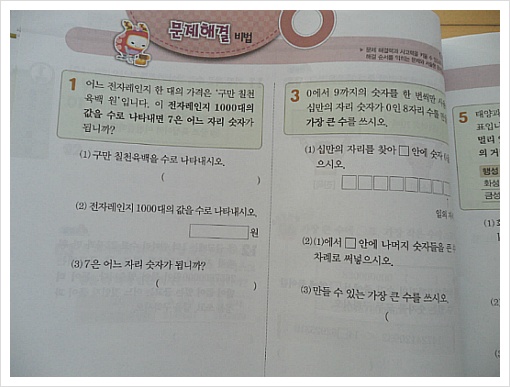 문제해결 비법
▶ 문제 해결력과 사고력을 키울 수
해결 순서를 익히는
1 어느 전자레인지 한 대의 가격은 '구만 칠천
육백 원'입니다. 이 전자레인지 1000대의
값을 수로 나타내면 7은 어느 자리 숫자가
됩니까?
(1) 구만 칠천육백을 수로 나타내시오.
( )
(2) 전자레인지 1000대의 값을 수로 나타내시오.
원
(3) 7은 어느 자리 숫자가 됩니까?
( )
3 0에서 9까지의 숫자를 한 번씩만
십만의 자리 숫자가 0인 8자리 수를
가장 큰 수를 쓰시오.
(1) 십만의 자리를 찾아 □ 안에 숫자
으시오.
일의
(2) (1)에서 □ 안에 나머지 숫자들을 큰
차례로 써넣으시오.
(3) 만들 수 있는 가장 큰 수를 쓰시오.
(
5 태양과
표입니
멀리
의 거
행성
화성
금성
(1)
(2)
(3)